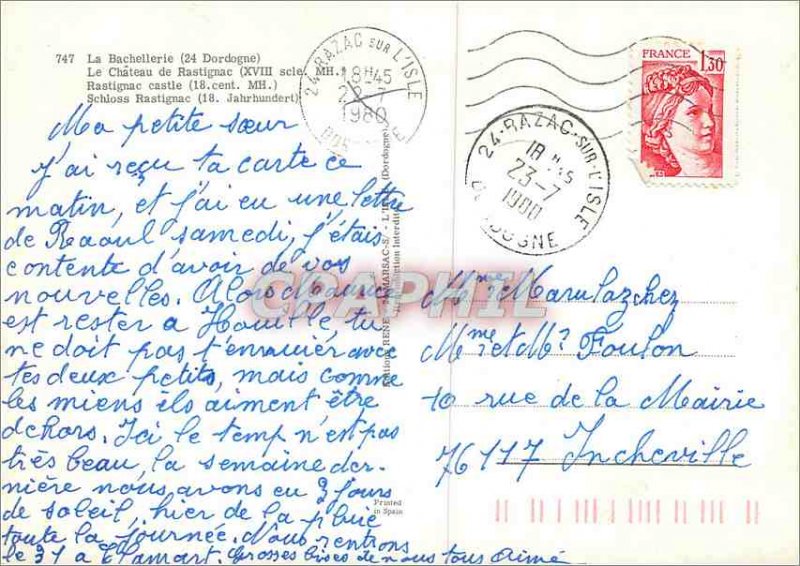 747 La Bachellerie (24 Dordogne)
Le Château de Rastignac (XVIII scle. MH.)
Rastignac castle (18.cent. MH.)
Schloss Rastignac (18. Jahrhundert)
24-RAZAC SUR L'ISLE
18H45
23-7
1980
FRANCE 1,30
24-RAZAC-SUR-L'ISLE
18 H45
23-7
1980
DORDOGNE
Ma petite sœur
J'ai reçu ta carte ce
matin, et j'ai eu une lettre
de Raoul samedi, j'étais
contente d'avoir de vos
nouvelles. Alors Maurice
est rester a Houille, tu
ne doit pas t'ennuier avec
tes deux petits, mais comme
les miens ils aiment être
dehors. Ici le temp n'est pas
très beau, la semaine der-
nière nous avons eu 3 jours
de soleil, hier de la pluie
toute la journée. Nous rentrons
le 31 a Clamart. Grosses bises de nous tous Aimé
Editions RENE
MARSAC-S.-L'ISLE (Dordogne)
Reproduction Interdite
CPAPHIL
Printed
in Spain
Mme Marulazhez
Mme et Mr Foulon
10 rue de la Mairie
76117 Incheville